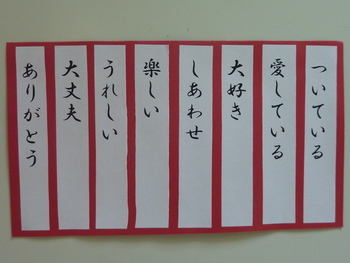 ついている
愛している
大好き
しあわせ
楽しい
うれしい
大丈夫
ありがとう